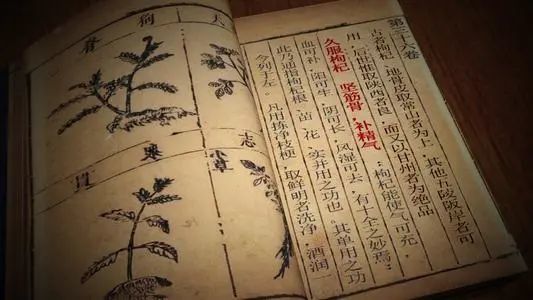 第三十六卷
古者枸杞、地骨皮取常山者为上，其他五陵阪岸者可
用，后世惟取陕西者良，而又以甘州者为绝品
久服枸杞 坚筋骨，补精气：枸杞能使气可充，
血可补，阳可生，阴可长，风湿可去，有十全之妙焉：
此乃通指枸杞根、苗、花、实并用之功也。其单用之功
今列于左。凡用拣净枝梗，取鲜明者洗净，酒润
天
狗脊
志
小草